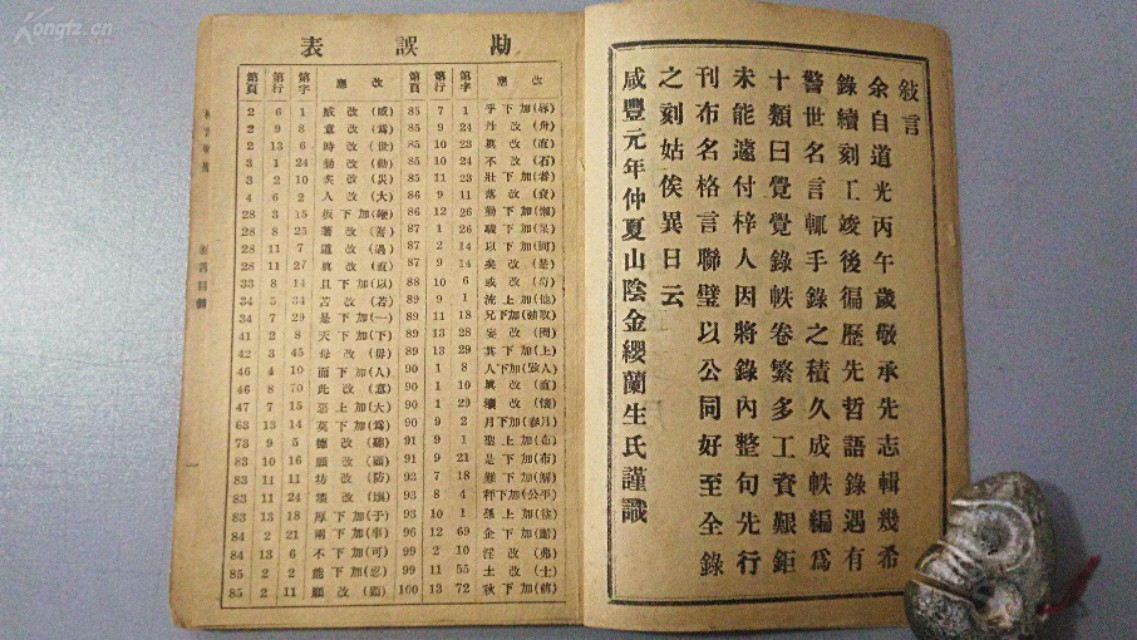 Kongfz.cn
敍言
余自道光丙午歲敬承先志輯幾希
錄續刻工竣後徧歷先哲語錄遇有
警世名言輒手錄之積久成帙編爲
十類曰覺覺錄帙卷繁多工資艱鉅
未能遽付梓人因將錄內整句先行
刊布名格言聯璧以公同好至全錄
之刻姑俟異日云
咸豐元年仲夏山陰金纓蘭生氏謹識
勘誤表
第頁 第行 第字 應改 第頁 第行 第字 應改
2 6 1 85 7 1 乎下加(辱)
2 9 8 意改(爲) 85 9 24 丹改(舟)
2 13 6 時改(世) 85 10 23 眞改(直)
3 1 24 85 10 24 不改(石)
3 2 10 矣改(災) 85 11 23 壯下加(者)
4 6 2 人改(大) 86 9 11 落改(衰)
28 3 15 86 12 26 勤下加(懶)
28 8 25 87 1 26 職下加(呆)
28 11 7 道改(過) 87 2 14 以下加(何)
28 11 27 眞改(直) 87 9 14 矣改(是)
33 8 14 且下加(以) 88 10 6 或改(奇)
34 5 34 苦改(若) 89 9 1 流上加(他)
34 7 29 是下加(一) 89 11 18
41 2 8 天下加(下) 89 13 28 妄改(問)
42 3 45 母改(毋) 89 13 29 其下加(上)
46 4 10 而下加(人) 90 1 8
46 8 70 此改(意) 90 1 10 眞改(直)
47 7 15 惡上加(大) 90 1 29 壞改(懷)
63 13 14 莫下加(爲) 90 9 2 月下加(春月)
73 9 5 德改(聽) 91 9 1 聖上加(布)
83 10 16 91 9 21 是下加(布)
83 11 11 坊改(防) 92 7 18 難下加(解)
83 11 24 93 8 4 秤下加(公平)
83 13 18 厚下加(于) 93 10 1
84 2 21 96 12 69
84 13 6 不下加(可) 99 2 10 淫改(弗)
85 2 2 能下加(忍) 99 11 55 土改(士)
85 2 11 100 13 72